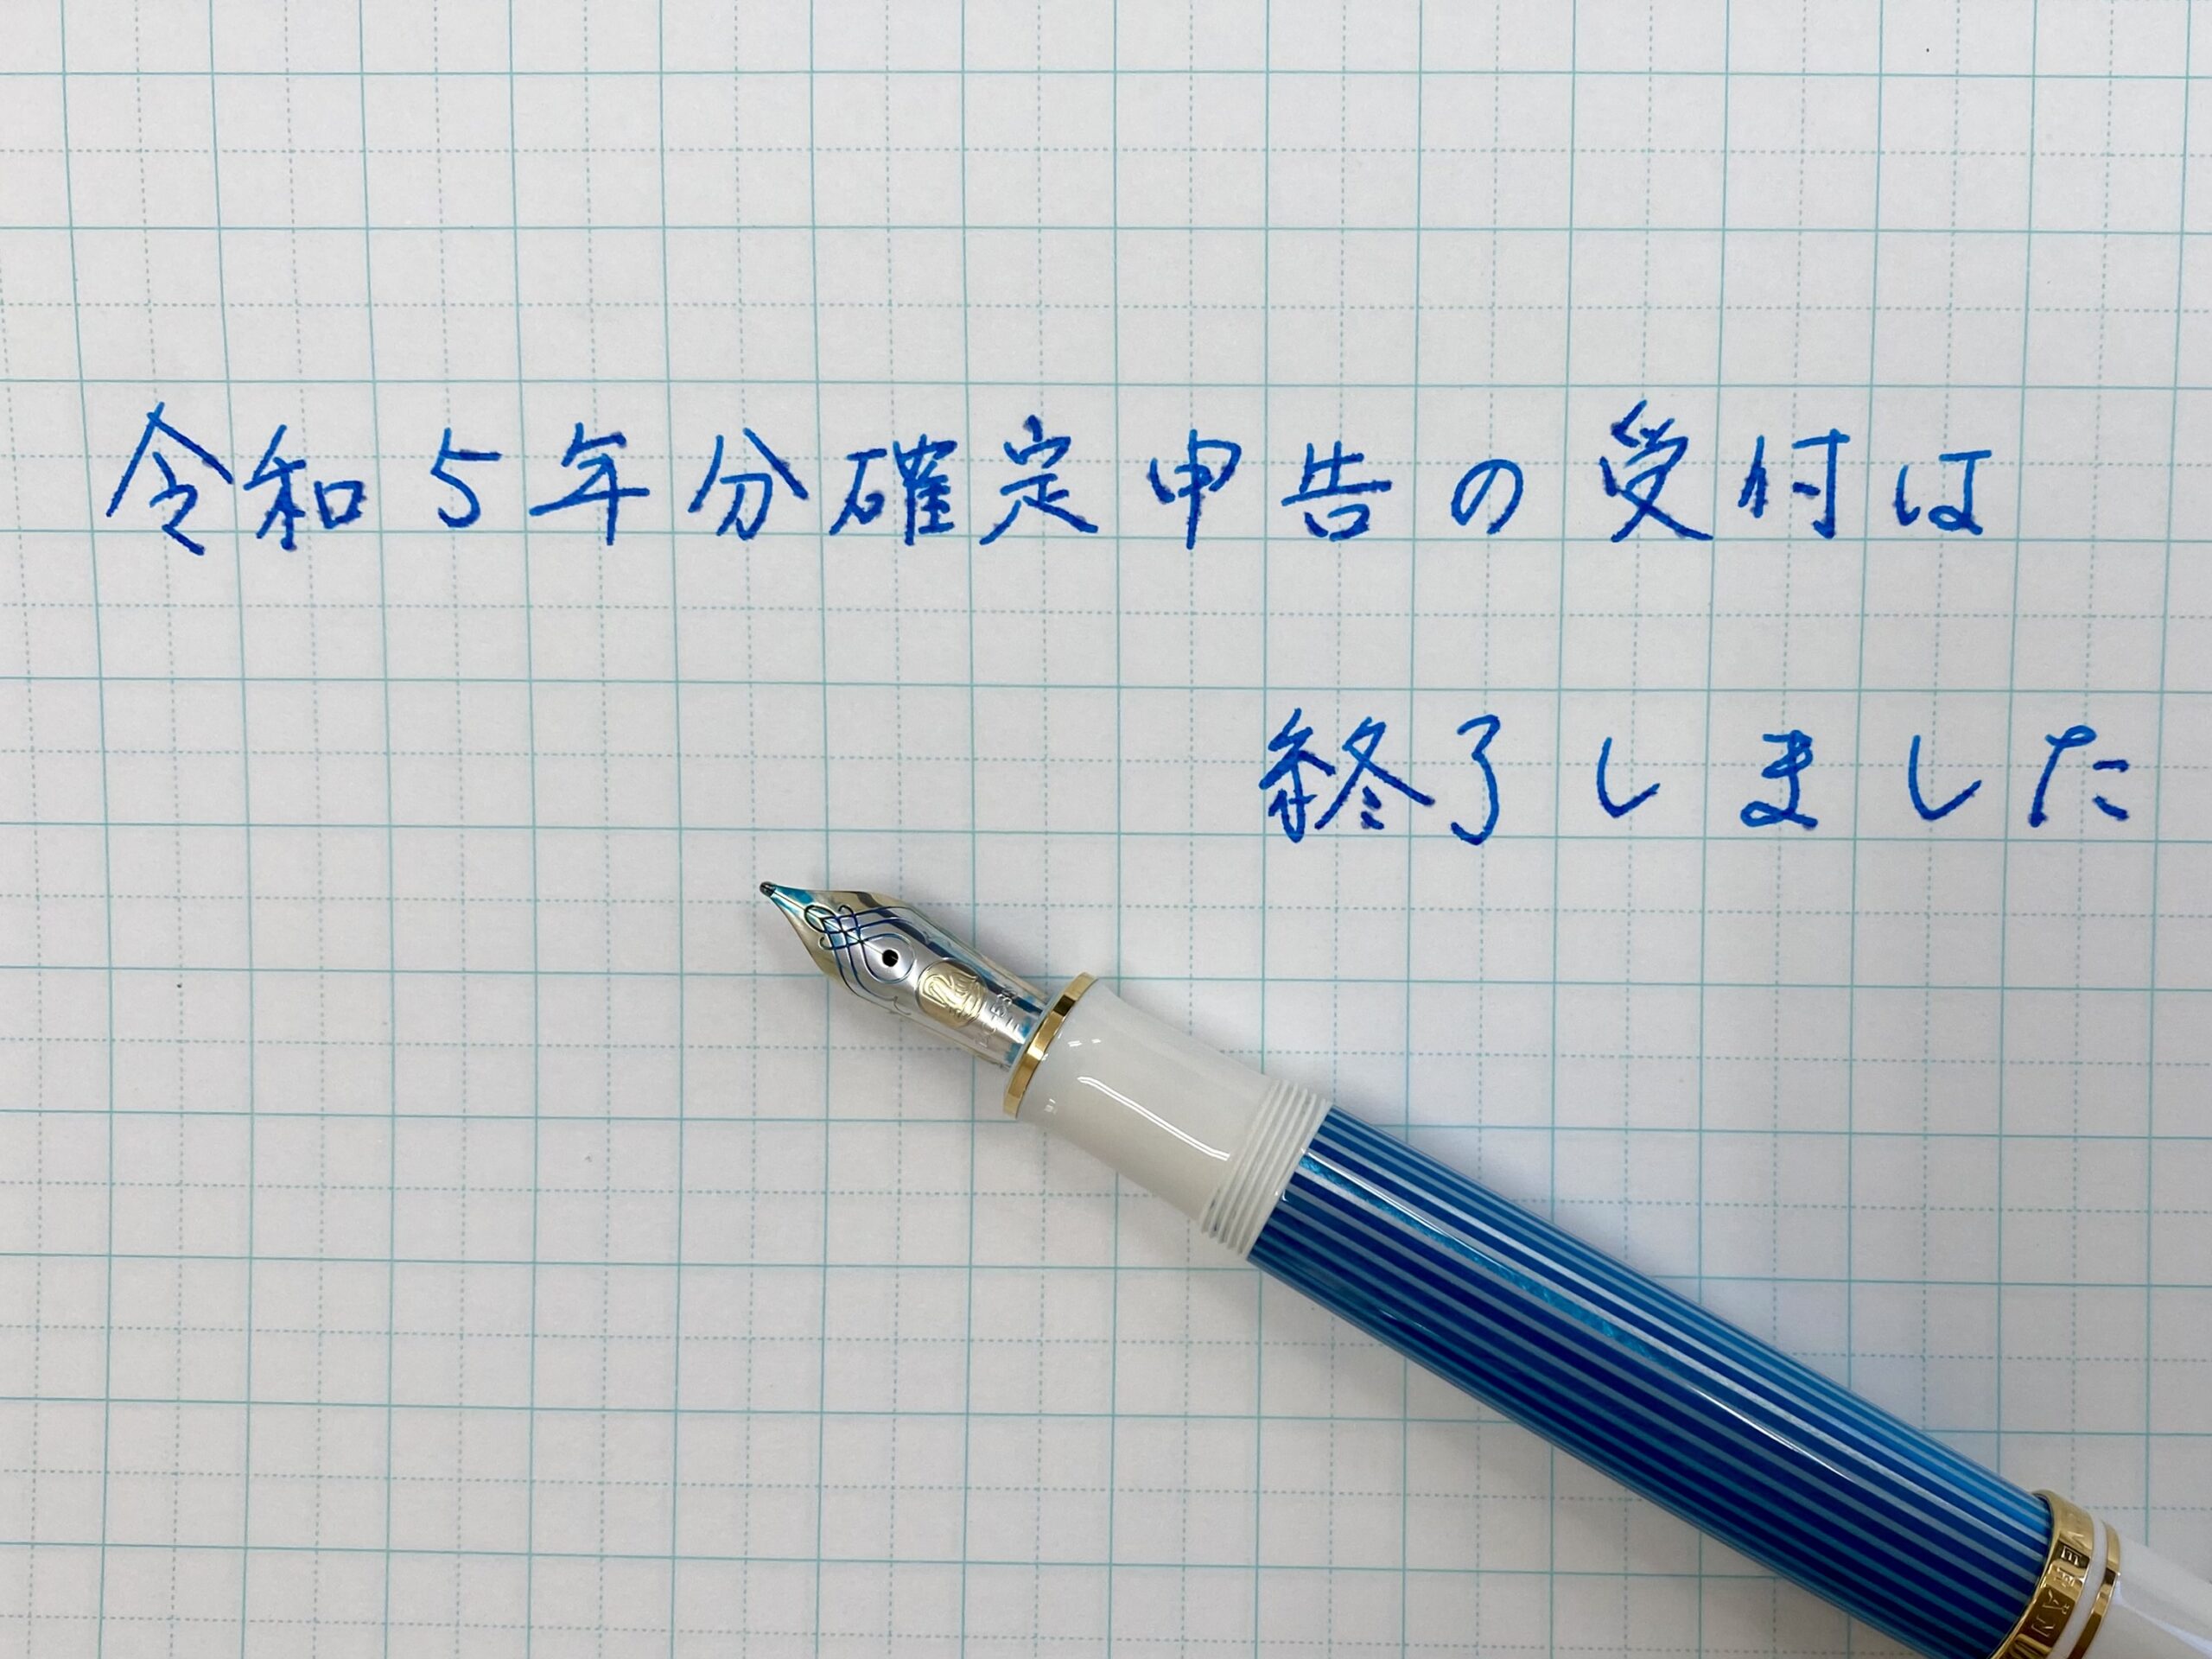 令和5年分確定申告の受付は
終了しました
GERMANY